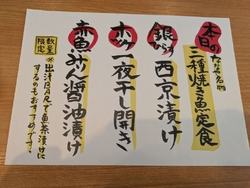 本日の
三種焼き魚定食
銀ひらす 西京漬け
ホッケ 一夜干し開き
赤魚 みりん醤油漬け
数量限定
※出汁BARで魚茶漬けに
するのもおすすめです!